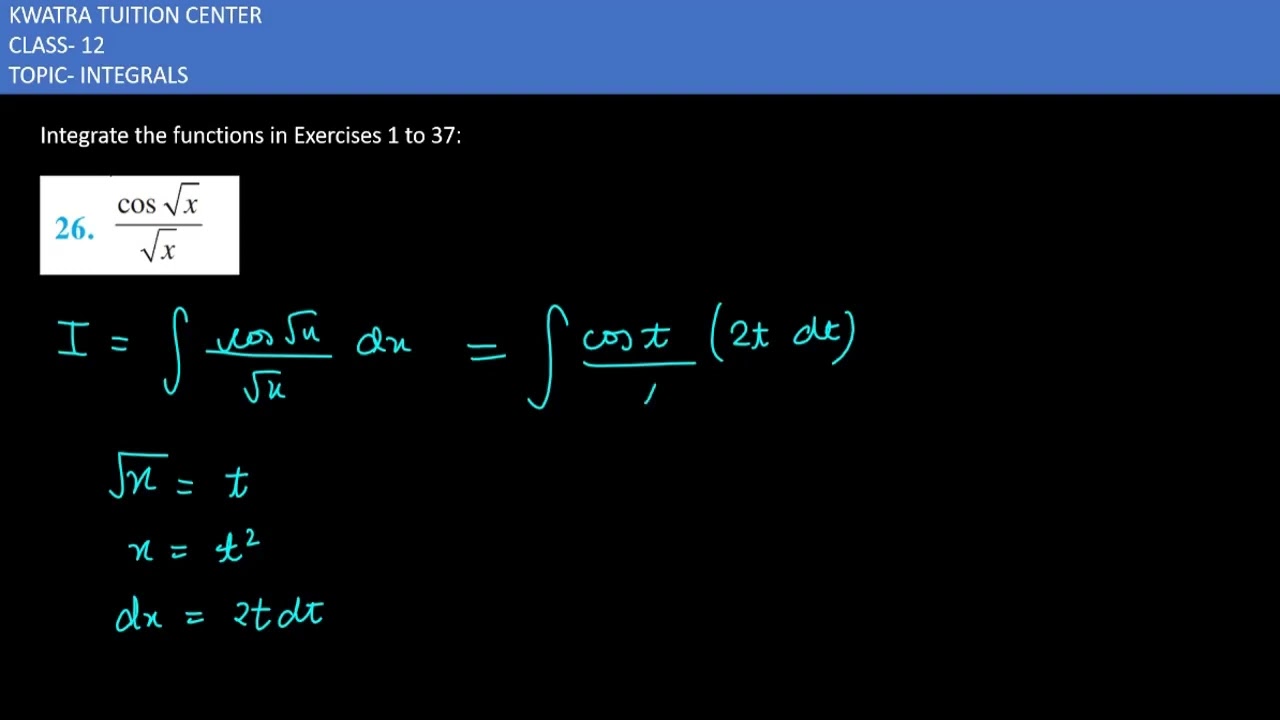 KWATRA TUITION CENTER
CLASS- 12
TOPIC- INTEGRALS
Integrate the functions in Exercises 1 to 37:
26. cos √x / √x
I = ∫ cos √x / √x dx = ∫ cos t / (2t dt)
√x = t
x = t²
dx = 2t dt